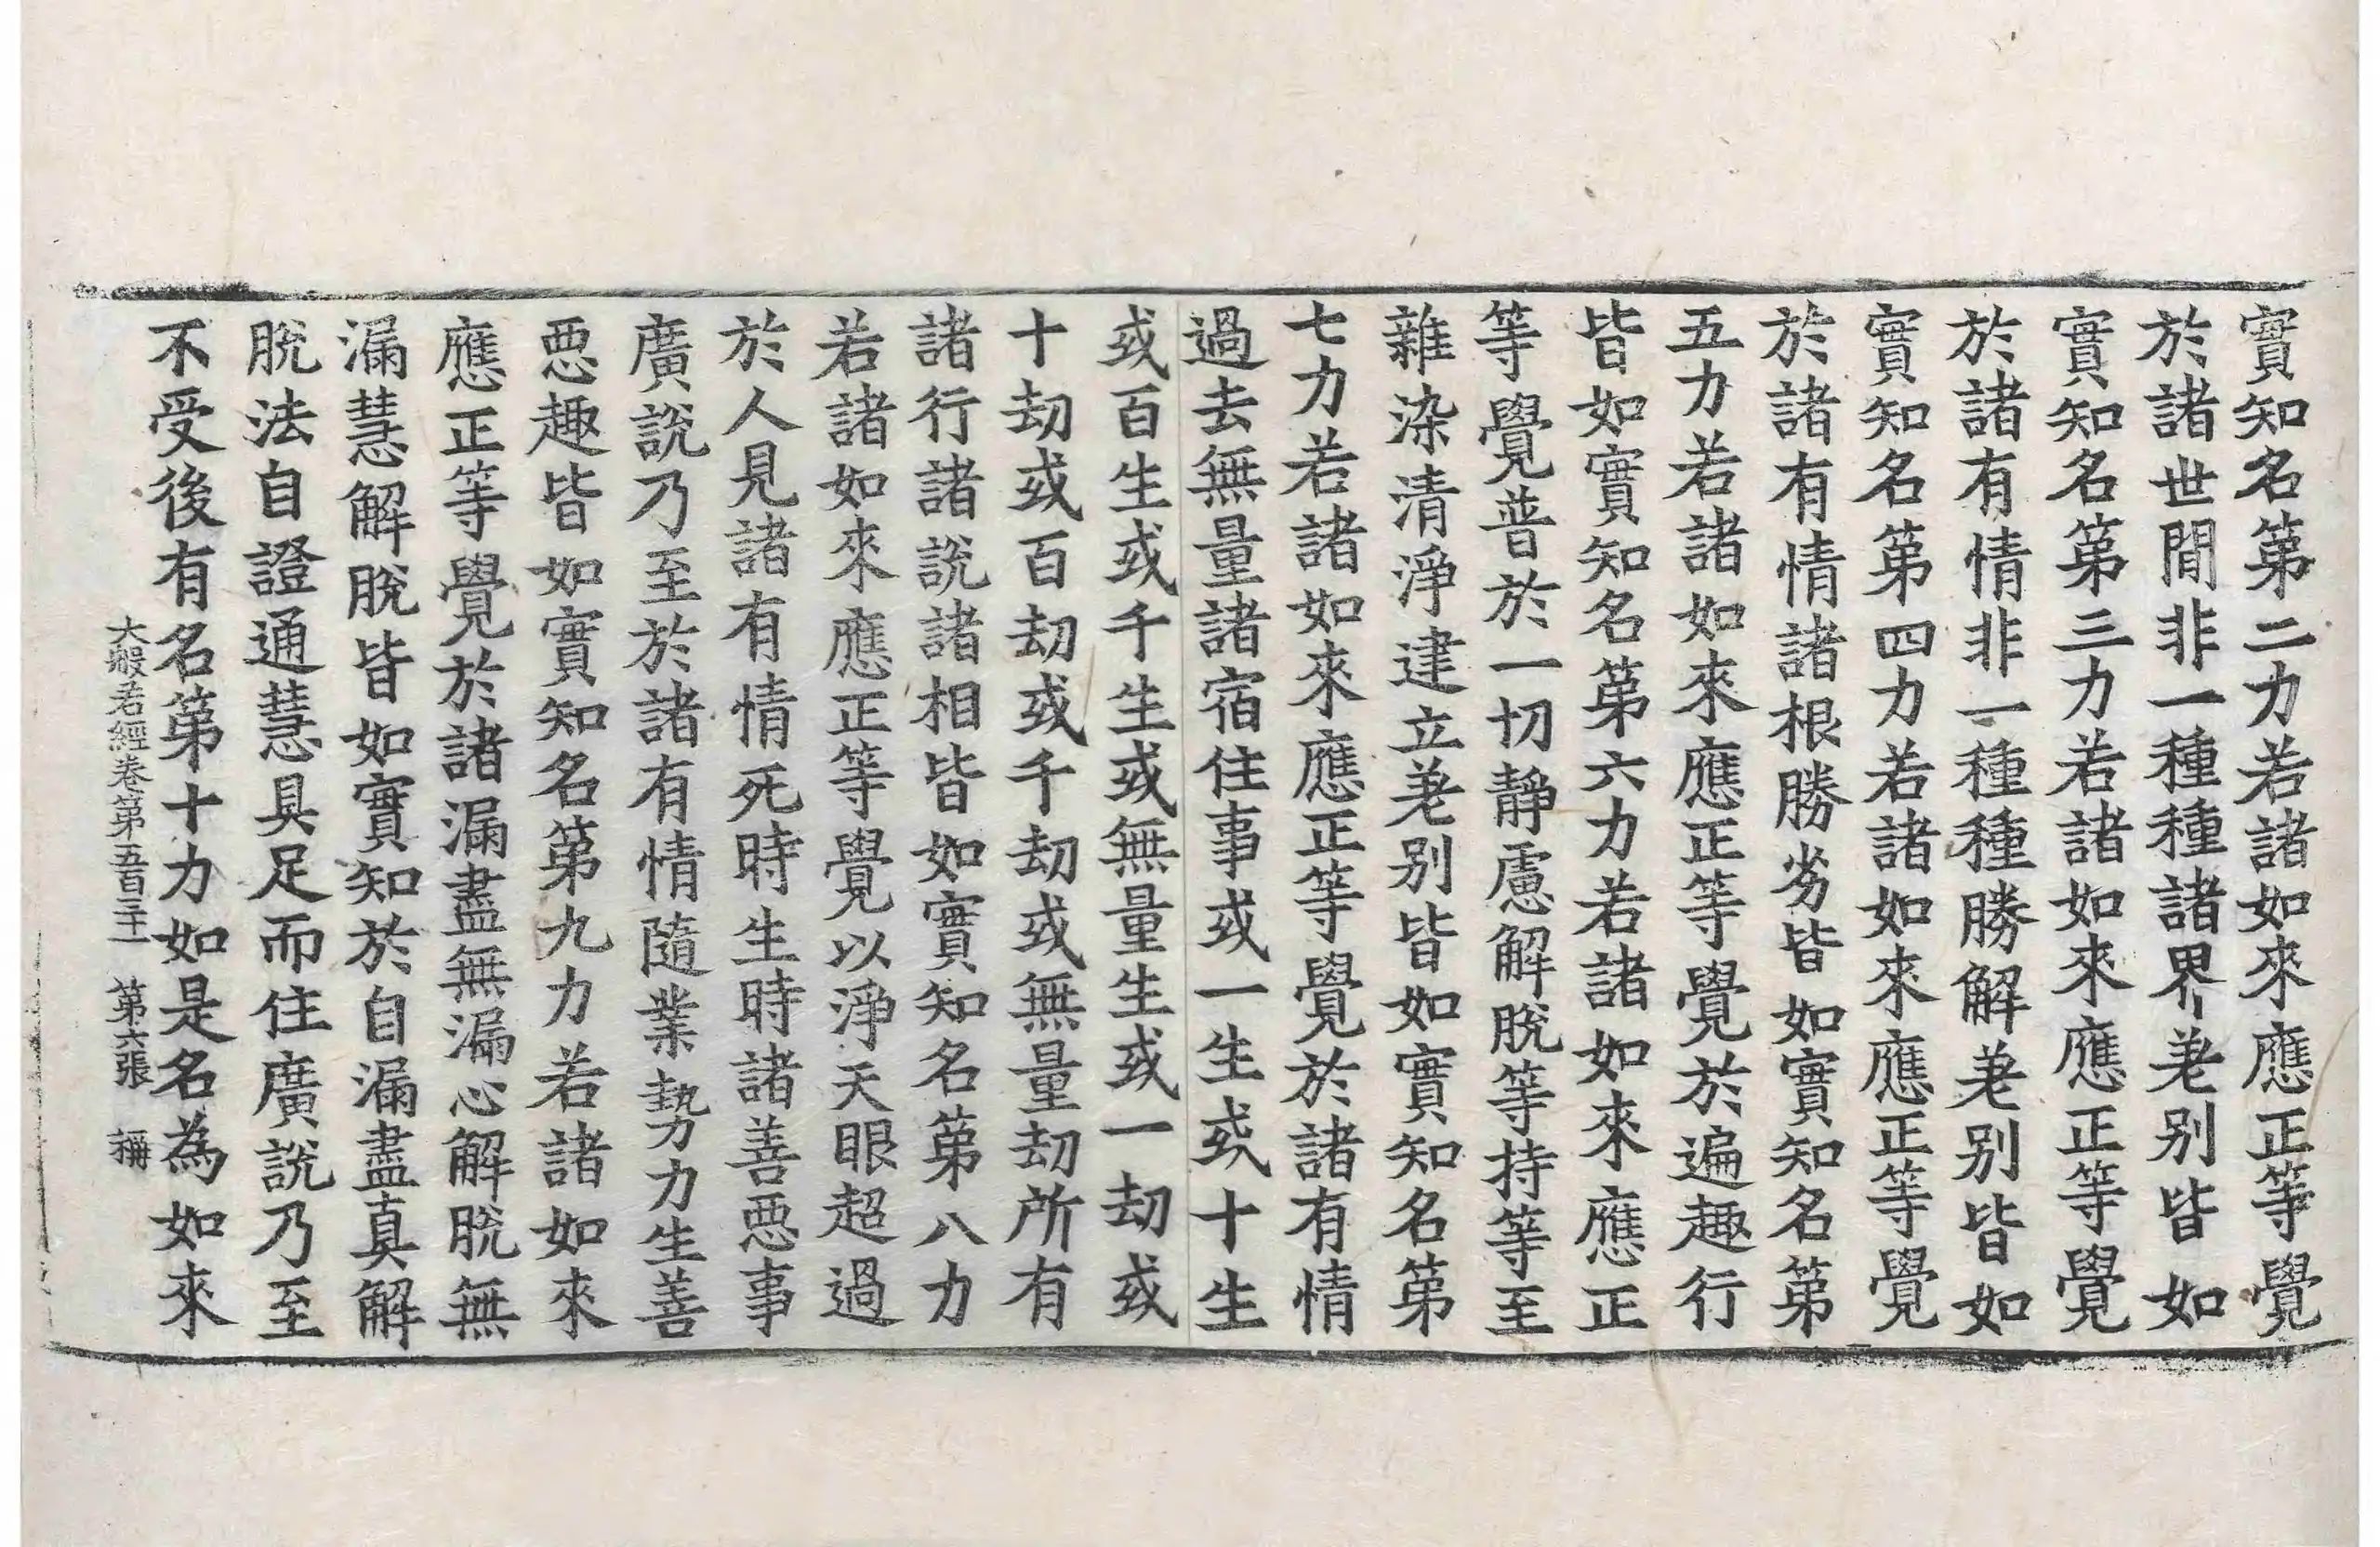 實知名第二力若諸如來應正等覺
於諸世間非一種種諸界差别皆如
實知名第三力若諸如來應正等覺
於諸有情非一種種勝解差别皆如
實知名第四力若諸如來應正等覺
於諸有情諸根勝劣皆如實知名第
五力若諸如來應正等覺於遍趣行
皆如實知名第六力若諸如來應正
等覺普於一切靜慮解脫等持等至
雜染清淨建立差别皆如實知名第
七力若諸如來應正等覺於諸有情
過去無量諸宿住事或一生或十生
或百生或千生或無量生或一劫或
十劫或百劫或千劫或無量劫所有
諸行諸說諸相皆如實知名第八力
若諸如來應正等覺以淨天眼超過
於人見諸有情死時生時諸善惡事
廣說乃至於諸有情隨業勢力生善
惡趣皆如實知名第九力若諸如來
應正等覺於諸漏盡無漏心解脫無
漏慧解脫皆如實知於自漏盡真解
脫法自證通慧具足而住廣說乃至
不受後有名第十力如是名為如來
大般若經卷第五百三十一 第六張 稱